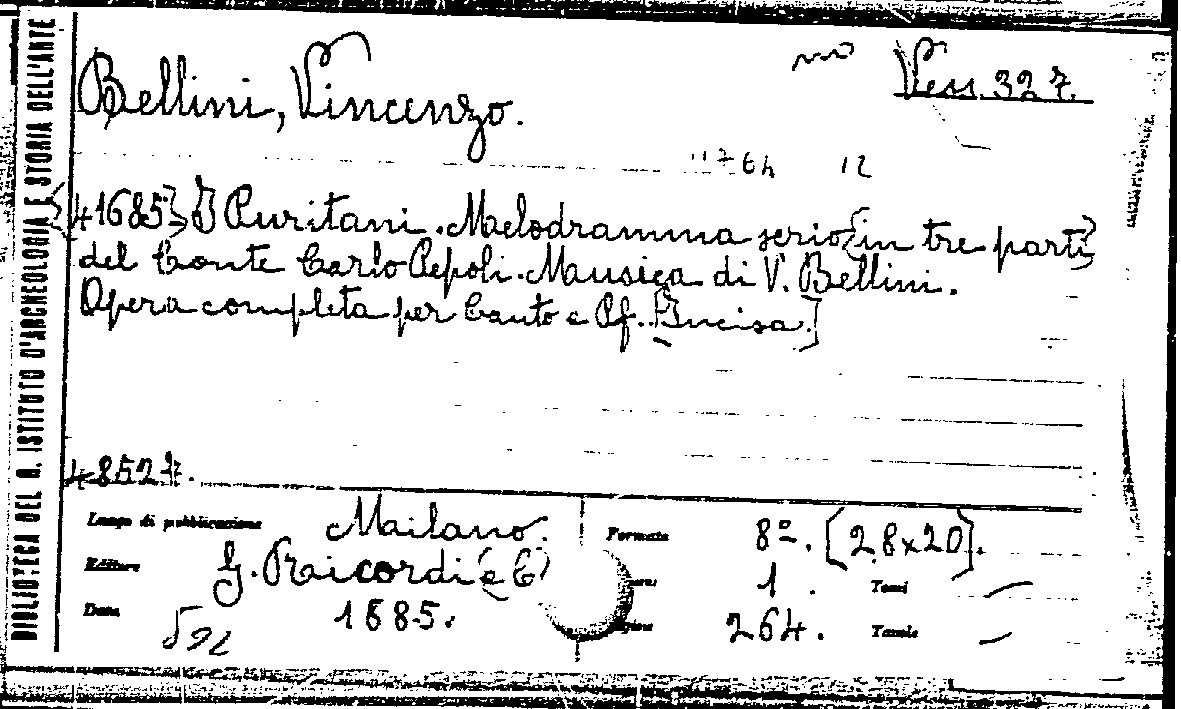 BIBLIOTECA DEL R. ISTITUTO D'ARCHEOLOGIA E STORIA DELL'ARTE
Bellini, Vincenzo.
Vess. 327.
12
41685} I Puritani. Melodramma serio {in tre parti}
del Conte Carlo Pepoli. Musica di V. Bellini.
Opera completa per Canto e Pf. [Incisa.]
48527.
Luogo di pubblicazione Milano. Formato 8º. [28x20].
Editore G. Ricordi e C 1. Tomi —
Data 1885. 264. Tavole —